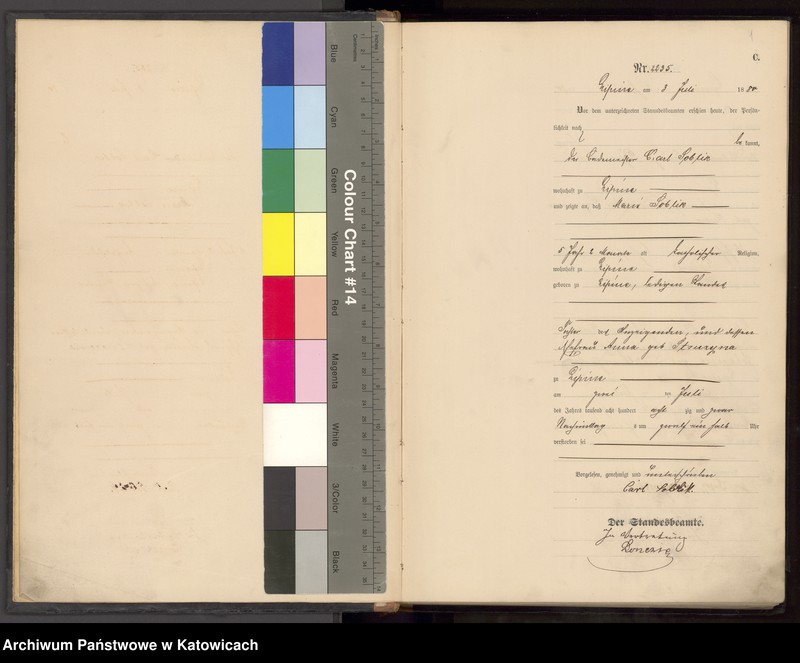 Blue
Cyan
Green
Yellow
Red
Magenta
White
3/Color
Black
Colour Chart #14
C.
Nr. 235.
Lipine am 3 Juli 18 80
Vor dem unterzeichneten Standesbeamten erschien heute, der Persön-
lichkeit nach
kannt,
der Carl Soblik
wohnhaft zu Lipine
und zeigte an, daß Marie Soblik
5 Jahr 2 Monate alt katholischer Religion,
wohnhaft zu Lipine
geboren zu Lipine, ledigen Standes
Tochter des Anzeigenden, und dessen
Ehefrau Anna geb
zu Lipine
am zwei ten Juli
des Jahres tausend acht hundert acht zig und
Nachmittag s um zwölf ein halb Uhr
verstorben sei
Vorgelesen, genehmigt und unterschrieben
Carl Soblik.
Der Standesbeamte.
In Vertretung
Archiwum Państwowe w Katowicach